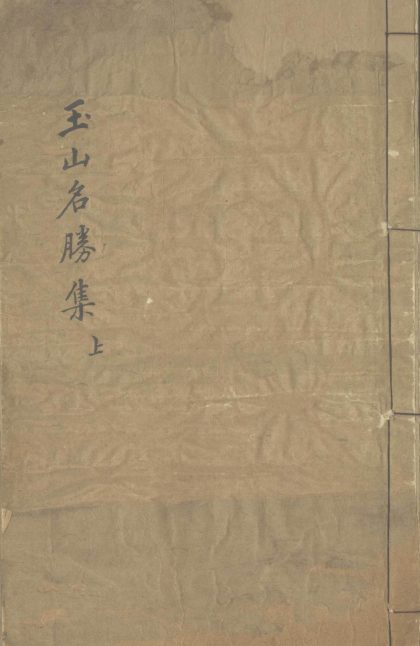 玉山名勝集上